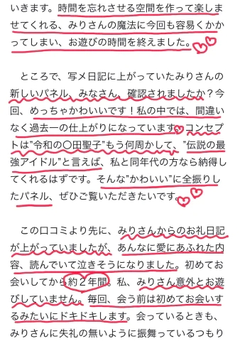 いきます。時間を忘れさせる空間を作って楽しま
せてくれる、みりさんの魔法に今回も容易くかか
ってしまい、お遊びの時間を終えました。
ところで、写メ日記に上がっていたみりさんの
新しいパネル、みなさん、確認されましたか？今
回、めっちゃかわいいです！私の中では、間違い
なく過去一の仕上がりになっています。コンセプ
トは“令和の〇田聖子”もう何周かして、“伝説の最
強アイドル”と言えば、私と同年代の方なら納得し
てくれるはずです。そんな“かわいい”に全振りし
たパネル、ぜひご覧いただきたいです。
この口コミより先に、みりさんからのお礼日記
が上がっていましたが、あんなに愛にあふれた内
容、読んでいて泣きそうになりました。初めてお
会いしてから約２年間、私、みりさん意外とお遊
びしていません。毎回、会う前は初めてお会いす
るみたいにドキドキします。会っているときも、
みりさんに失礼の無いように振舞っているつもり